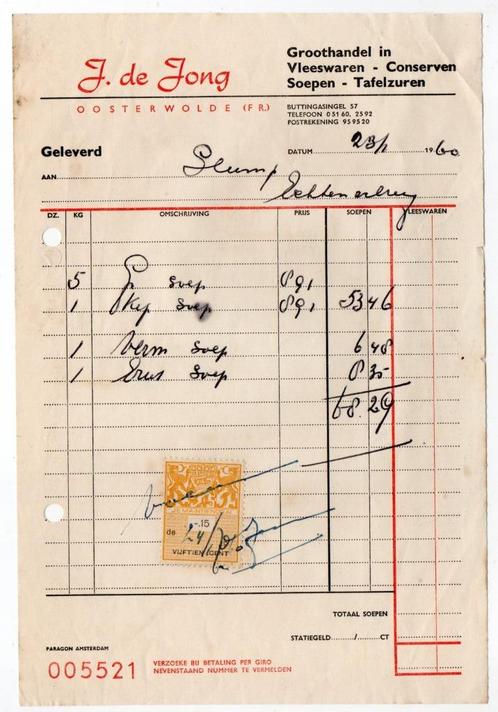 J. de Jong
OOSTERWOLDE (FR.)
Groothandel in
Vleeswaren - Conserven
Soepen - Tafelzuren
BUTTINGASINGEL 57
TELEFOON 05160, 2592
POSTREKENING 959520
Geleverd
DATUM 23/1 1960
AAN Slump
Echtenerbrug
DZ. KG OMSCHRIJVING PRIJS SOEPEN VLEESWAREN
5 soep 891
1 Kip soep 891 5346
1 Verm soep 648
1 soep 835
68.29
-.15
de 24/1
VIJFTIEN CENT
TOTAAL SOEPEN
STATIEGELD / CT
PARAGON AMSTERDAM
005521
VERZOEKE BIJ BETALING PER GIRO
NEVENSTAAND NUMMER TE VERMELDEN